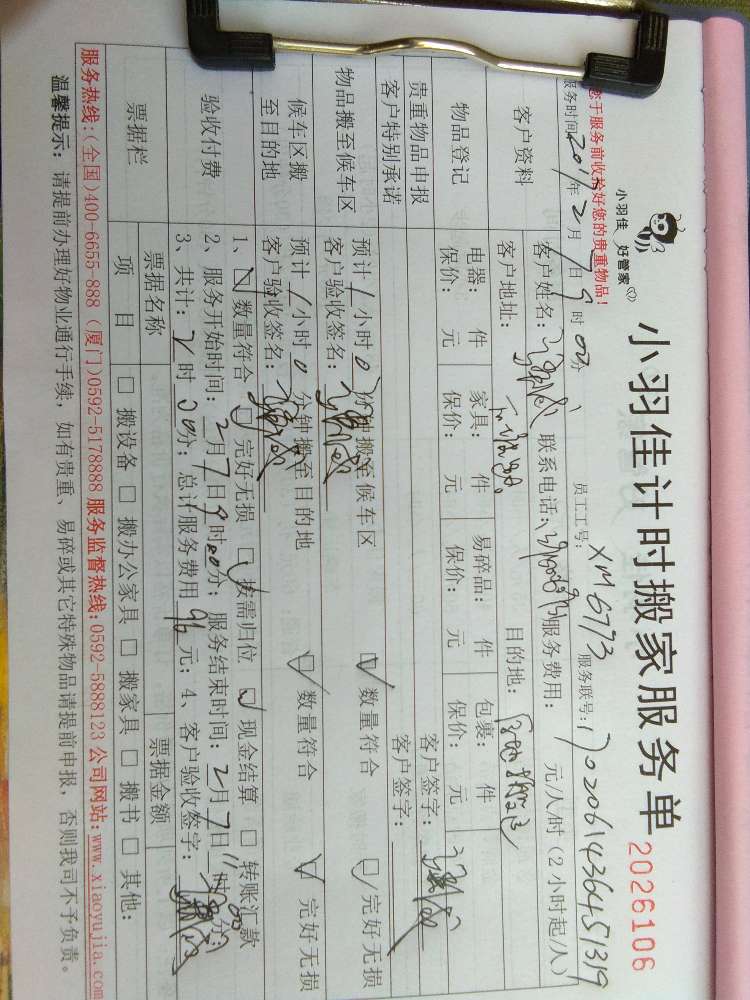 小羽佳 好管家
小羽佳计时搬家服务单 2026106
您于服务前收拾好您的贵重物品!
员工工号: XM6773 服务联号: 170206143645 1319
服务时间 2017年2月7日9时00分
客户资料
客户姓名: 联系电话: 服务费用: 元/人/时(2小时起/人)
客户地址: 目的地:
物品登记
电器: 件 家具: 件 易碎品: 件 包裹: 件
保价: 元 保价: 元 保价: 元 保价: 元
贵重物品申报 客户签字:
客户特别承诺 客户签字:
物品搬至候车区
预计1小时0分钟搬至候车区 数量符合 完好无损
客户验收签名:
候车区搬至目的地
预计1小时0分钟搬至目的地 数量符合 完好无损
客户验收签名:
验收付费
1、数量符合 完好无损 按需归位 现金结算 转账汇款
2、服务开始时间:2月7日9时00分;服务结束时间:2月7日11时00分;
3、共计:2时00分;总计服务费用96元;4、客户验收签字:
票据栏
票据名称 票据金额
项目 搬设备 搬办公家具 搬家具 搬书 其他:
服务热线:(全国)400-6655-888 (厦门)0592-5178888 服务监督热线:0592-5888123 公司网站:www.xiaoyujia.com
温馨提示:请提前办理好物业通行手续,如有贵重、易碎或其它特殊物品请提前申报,否则我司不予负责。